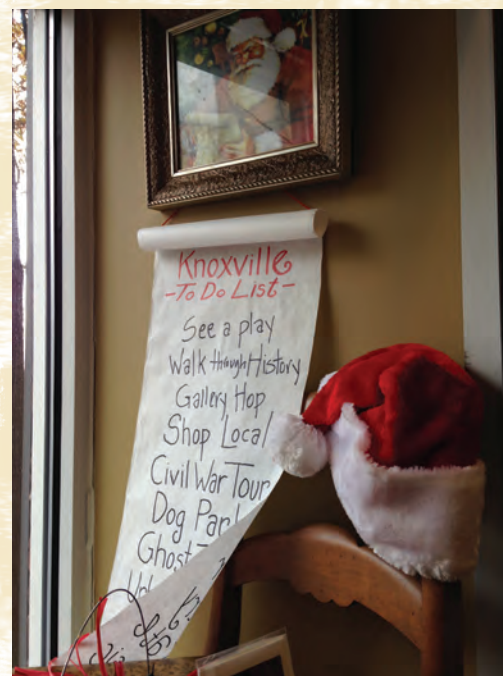 Knoxville
-To Do List-
See a play
Walk through History
Gallery Hop
Shop Local
Civil War Tour
Dog Park
Ghost